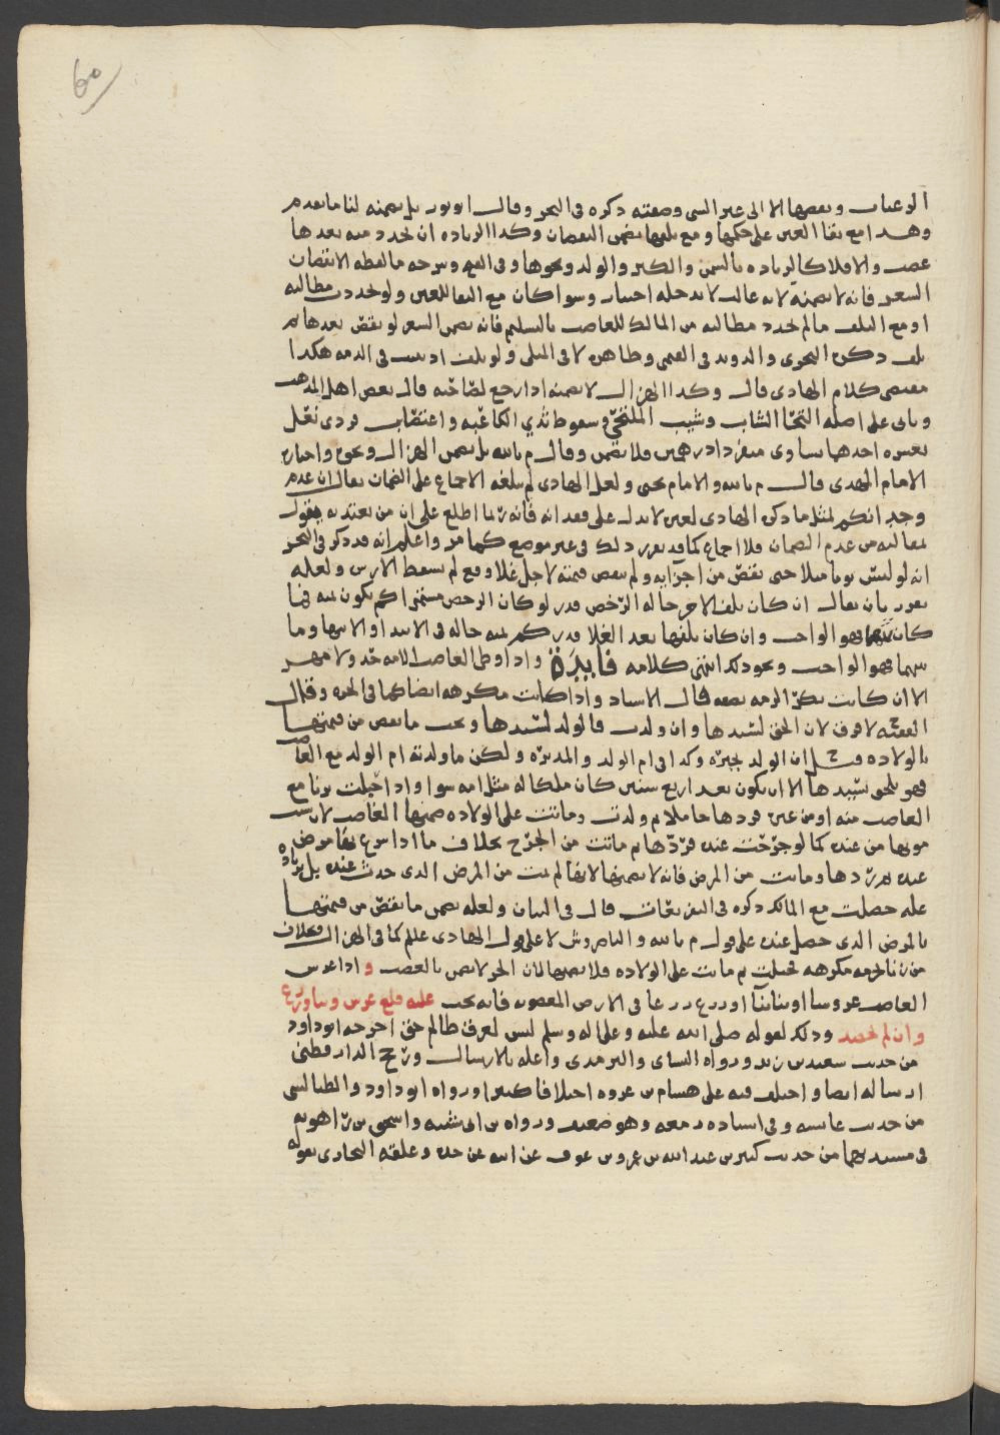 60
الرغبات وبعضها الا الى غير السى وصفته ذكره فى البحر وقال ابو ثور بل يضمنه لنا ما تقدم
وهذا مع بقا العين على حكمها ومع تلفها يضمن النقصان وكذا الزياده ان تجدد منه بعدها
غصب والا فلا كالزياده بالسمن والكبر والولد ونحوها وفى الفتح وشرحه ما لفظه الا نقصان
السعر فانه لا يضمنه لانه غالب لا يدخله اختيار وسوا كان مع البقا للعين ولو تجددت مطالبه
او مع التلف ما لم تجدد مطالبه من المالك للغاصب بالتسليم فانه يضمن السعر لو نقص بعدها ثم
تلف ذكره النجرى والدوارى فى القيمى وظاهره لا فى المثلى ولو تلف اذ يثبت فى الذمه هكذا
مقتضى كلام الهادى قال وكذا الهزال لا يضمنه اذا رجع لصاحبه قال بعض اهل المذهب
وياتى على اصله التحا الشاب وشيب الملتحى وسقوط ثدي الكاعبه واغتصاب فردى نعل
بعشره احدهما يساوى منفردا درهمين فلا يضمن وقال م بالله بل يضمن الهزال ونحوه واختاره
الامام المهدى قال م بالله والامام يحيى ولعل الهادى لم يبلغه الاجماع على الضمان يقال ان عدم
وجدانكم لمثل ما ذكره الهادى لغيره لا يدل على فقدانه فانه ربما اطلع على ان من يعتد به يقول
بمقالته من عدم الضمان فلا اجماع كما قد تقرر ذلك فى غير موضع كما مر واعلم انه قد ذكر فى البحر
انه لو لبس ثوبا مثلا حتى نقص من اجزايه ولم تنقص قيمته لاجل غلا وقع لم يسقط الارش ولعله
يقرر بان يقال ان كان تلف الاجزا حاله الرخص قدر لو كان الرخص مستمرا كم يكون ثمنه فما
كان بينهما فهو الواجب وان كان تلفها بعد الغلا قدر كم ثمنه حاله فى الابتدا والانتها وما
بينهما فهو الواجب ونحو ذلك انتهى كلامه فايدة واذا وطى الغاصب الامه حد ولا مهر
الا ان كانت بكرا لزمه نصفه قال الاستاد واذا كانت مكرهه ايضا كما فى الحره وقال
الفقيه لا فرق لان الحق لسيدها وان ولدت فالولد لسيدها ويجب ما نقص من قيمتها
بالولاده وقيل ان الولد يجبره وكذا فى ام الولد والمدبره ولكن ما ولدته ام الولد مع الغاصب
فهو يلحق بسيدها الا ان يكون بعد اربع سنين كان ملكا له مثل امه سوا واذا حبلت بزنا مع
الغاصب منه او من غيره فردها حاملا ثم ولدت وماتت على الولاده ضمنها الغاصب لان سبب
موتها من عنده كما لو جرحت عنده فردها ثم ماتت من الجرح بخلاف ما اذا مرض بها مرض
عنده ثم ردها وماتت من المرض فانه لا يضمنها لانها لم تمت من المرض الذى حدث عنده بل بزياده
عله حصلت مع المالك ذكره فى التفريعات قال فى البيان ولعله يضمن ما نقص من قيمتها
بالمرض الذى حصل عنده على قول م بالله والناصر وش لا على قول الهادى عليلم كما فى الهزال وبخلاف
من زنا بحره مكرهه فحبلت ثم ماتت على الولاده فلا يضمنها لان الحر لا يضمن بالغصب واذا غرس
الغاصب غروسا او بنا بناا او زرع زرعا فى الارض المغصوبه فانه يجب عليه قلع غرس وبنا وزرع
وان لم يحصد وذلك لقوله صلى الله عليه وعلى اله وسلم ليس لعرق ظالم حق اخرجه ابو داود
من حديث سعيد بن زيد ورواه النساى والترمذى واعله بالارسال ورجح الدارقطنى
ارساله ايضا واختلف فيه على هشام بن عروه اختلافا كثيرا ورواه ابو داود والطيالسى
من حديث عايشه وفى اسناده زمعه وهو ضعيف ورواه بن ابى شيبه واسحق بن راهويه
فى مسنديهما من حديث كثير بن عبد الله بن عمرو بن عوف عن ابيه عن جده وعلقه البخارى بقوله